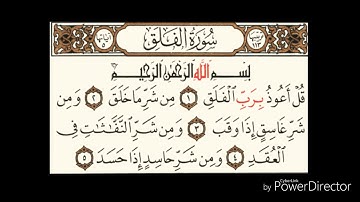 سُورَةُ الفَلَقِ
ترتيبها ١١٣
آياتها ٥
بِسْمِ اللَّهِ الرَّحْمَٰنِ الرَّحِيمِ
قُلْ أَعُوذُ بِرَبِّ الْفَلَقِ ١ مِن شَرِّ مَا خَلَقَ ٢ وَمِن
شَرِّ غَاسِقٍ إِذَا وَقَبَ ٣ وَمِن شَرِّ النَّفَّاثَاتِ فِي
الْعُقَدِ ٤ وَمِن شَرِّ حَاسِدٍ إِذَا حَسَدَ ٥
CyberLink
by PowerDirector